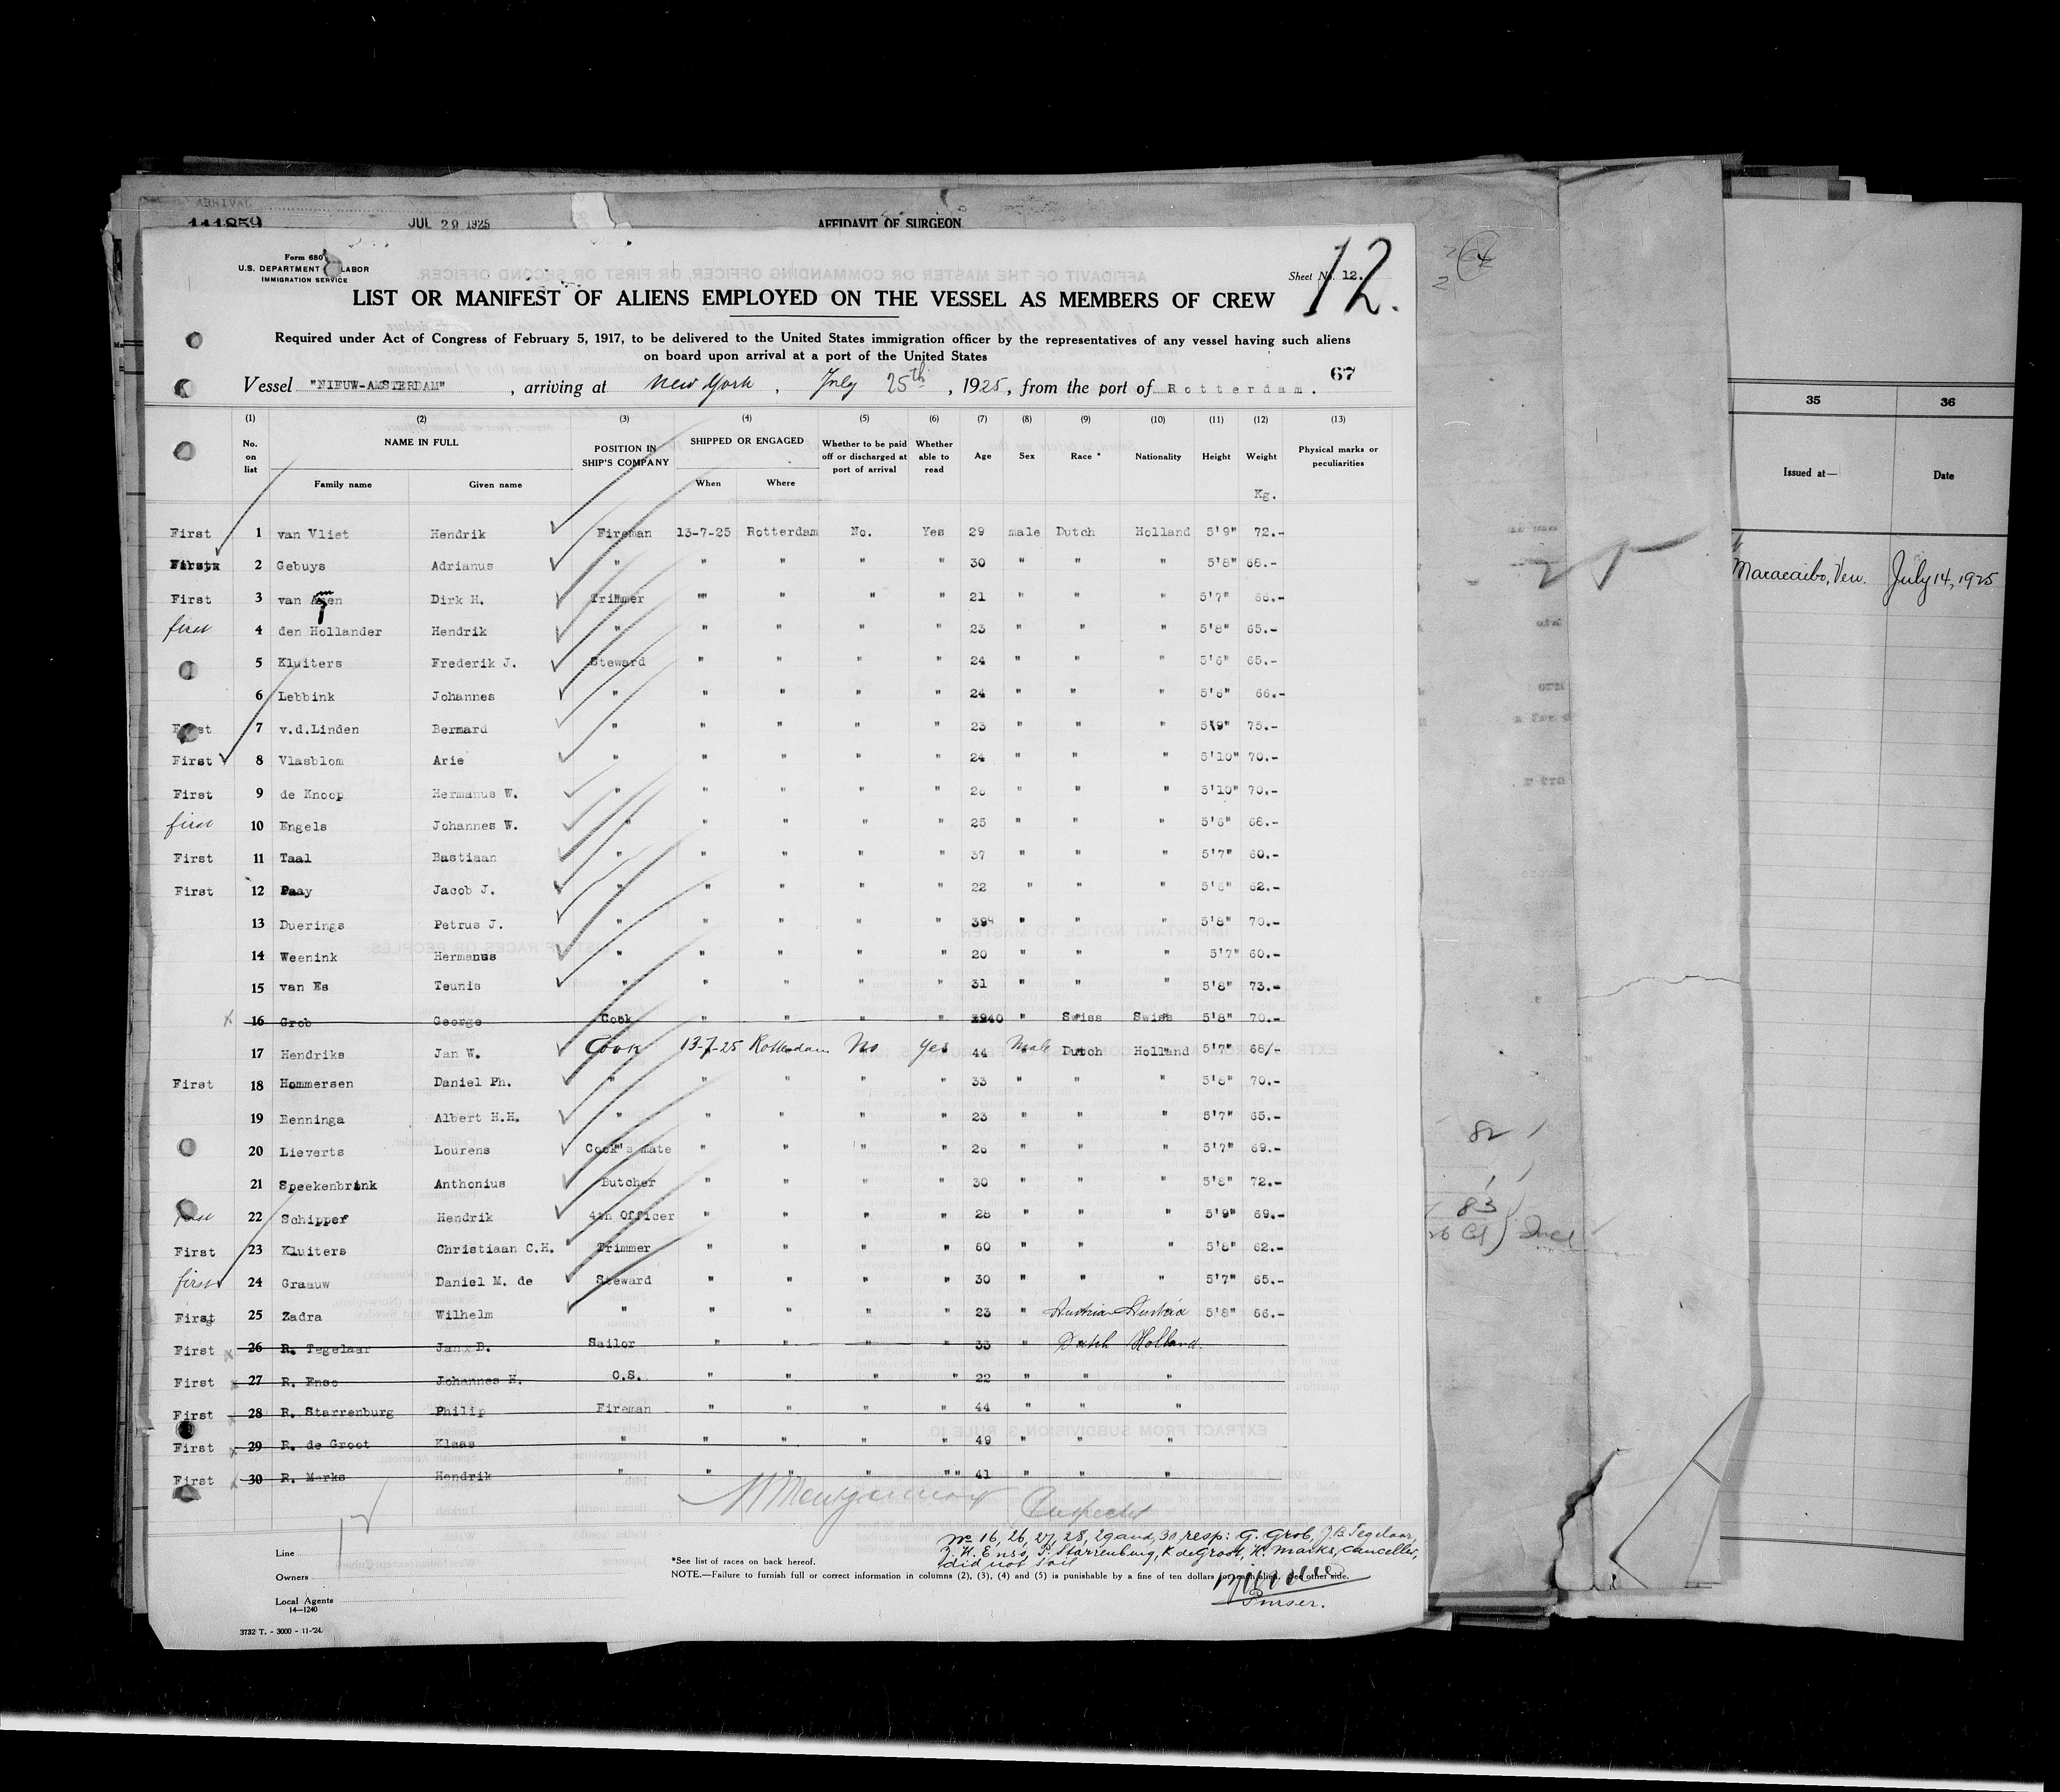 ARRIVAL
111859 JUL 29 1925 AFFIDAVIT OF SURGEON
Form 680
U.S. DEPARTMENT LABOR
IMMIGRATION SERVICE
Sheet No. 12.
12.
LIST OR MANIFEST OF ALIENS EMPLOYED ON THE VESSEL AS MEMBERS OF CREW
Required under Act of Congress of February 5, 1917, to be delivered to the United States immigration officer by the representatives of any vessel having such aliens
on board upon arrival at a port of the United States
67
Vessel "NIEUW-AMSTERDAM" , arriving at New York , July 25th , 1925, from the port of Rotterdam.
(1) (2) (3) (4) (5) (6) (7) (8) (9) (10) (11) (12) (13)
No. on list NAME IN FULL Family name Given name POSITION IN SHIP'S COMPANY SHIPPED OR ENGAGED When Where Whether to be paid off or discharged at port of arrival Whether able to read Age Sex Race * Nationality Height Weight Physical marks or peculiarities
Kg.
First 1 van Vliet Hendrik Fireman 13-7-25 Rotterdam No. Yes 29 male Dutch Holland 5'9" 72.-
2 Gebuys Adrianus " " " " 30 " " " 5'8" 68.-
First 3 van Dirk H. Trimmer " " " " 21 " " " 5'7" 66.-
first 4 den Hollander Hendrik " " " " " 23 " " " 5'8" 65.-
5 Kluiters Frederik J. Steward " " " " 24 " " " 5'6" 65.-
6 Lebbink Johannes " " " " " 24 " " " 5'8" 66.-
First 7 v.d.Linden Bernard " " " " " 23 " " " 5'9" 75.-
First 8 Vlasblom Arie " " " " " 24 " " " 5'10" 70.-
First 9 de Knoop Hermanus W. " " " " " " " " 5'10" 70.-
first 10 Engels Johannes W. " " " " " 25 " " " 5'6" 68.-
First 11 Taal Bastiaan " " " " " 37 " " " 5'7" 60.-
First 12 Paay Jacob J. " " " " " 22 " " " 62.-
13 Duerings Petrus J. " " " " " 39 " " " 5'8" 70.-
14 Weenink Hermanus " " " " " 20 " " " 5'7" 60.-
15 van Es Teunis " " " " " 31 " " " 5'8" 73.-
x 16 Grob George Cook " " " " 40 " Swiss Swiss 5'8" 70.-
17 Hendriks Jan W. Cook 13-7-25 Rotterdam No Yes 44 Male Dutch Holland 5'7" 68/-
First 18 Hommersen Daniel Ph. " " " " " 33 " " " 5'8" 70.-
19 Benninga Albert H.H. " " " " " 23 " " " 5'7" 65.-
20 Lieverts Lourens Cook's mate " " " " 26 " " " 5'7" 69.-
21 Speekenbrink Anthonius Butcher " " " " 30 " " " 5'8" 72.-
first 22 Schipper Hendrik 4th Officer " " " " 28 " " " 5'9" 69.-
First 23 Kluiters Christiaan C.H. Trimmer " " " " 60 " " " 5'8" 62.-
first 24 Graauw Daniel M. de Steward " " " " 30 " " " 5'7" 65.-
First 25 Zadra Wilhelm " " " " " 23 " Austrian Austria 5'8" 66.-
First x 26 R. Tegelaar Jan B. Sailor " " " " 33 " Dutch Holland.
First x 27 R. Enso Johannes H. O.S. " " " " 22 " " "
First x 28 R. Starrenburg Philip Fireman " " " " 44 " " "
First x 29 R. de Groot Klaas " " " " " 49 " " "
First x 30 R. Marks Hendrik " " " " " 41 " " "
Nos 16, 26, 27, 28, 29 and, 30 resp: G. Grob, J.B. Tegelaar,
J. H. Enso, P. Starrenburg, K de Groot, H. Marks, canceller,
did not sail
Purser.
Line
Owners
Local Agents
14—1240
*See list of races on back hereof.
NOTE.—Failure to furnish full or correct information in columns (2), (3), (4) and (5) is punishable by a fine of ten dollars for each alien. See other side.
3732 T. - 3000 - 11-'24.
82
83
35 36
Issued at— Date
Maracaibo, Ven. July 14, 1925